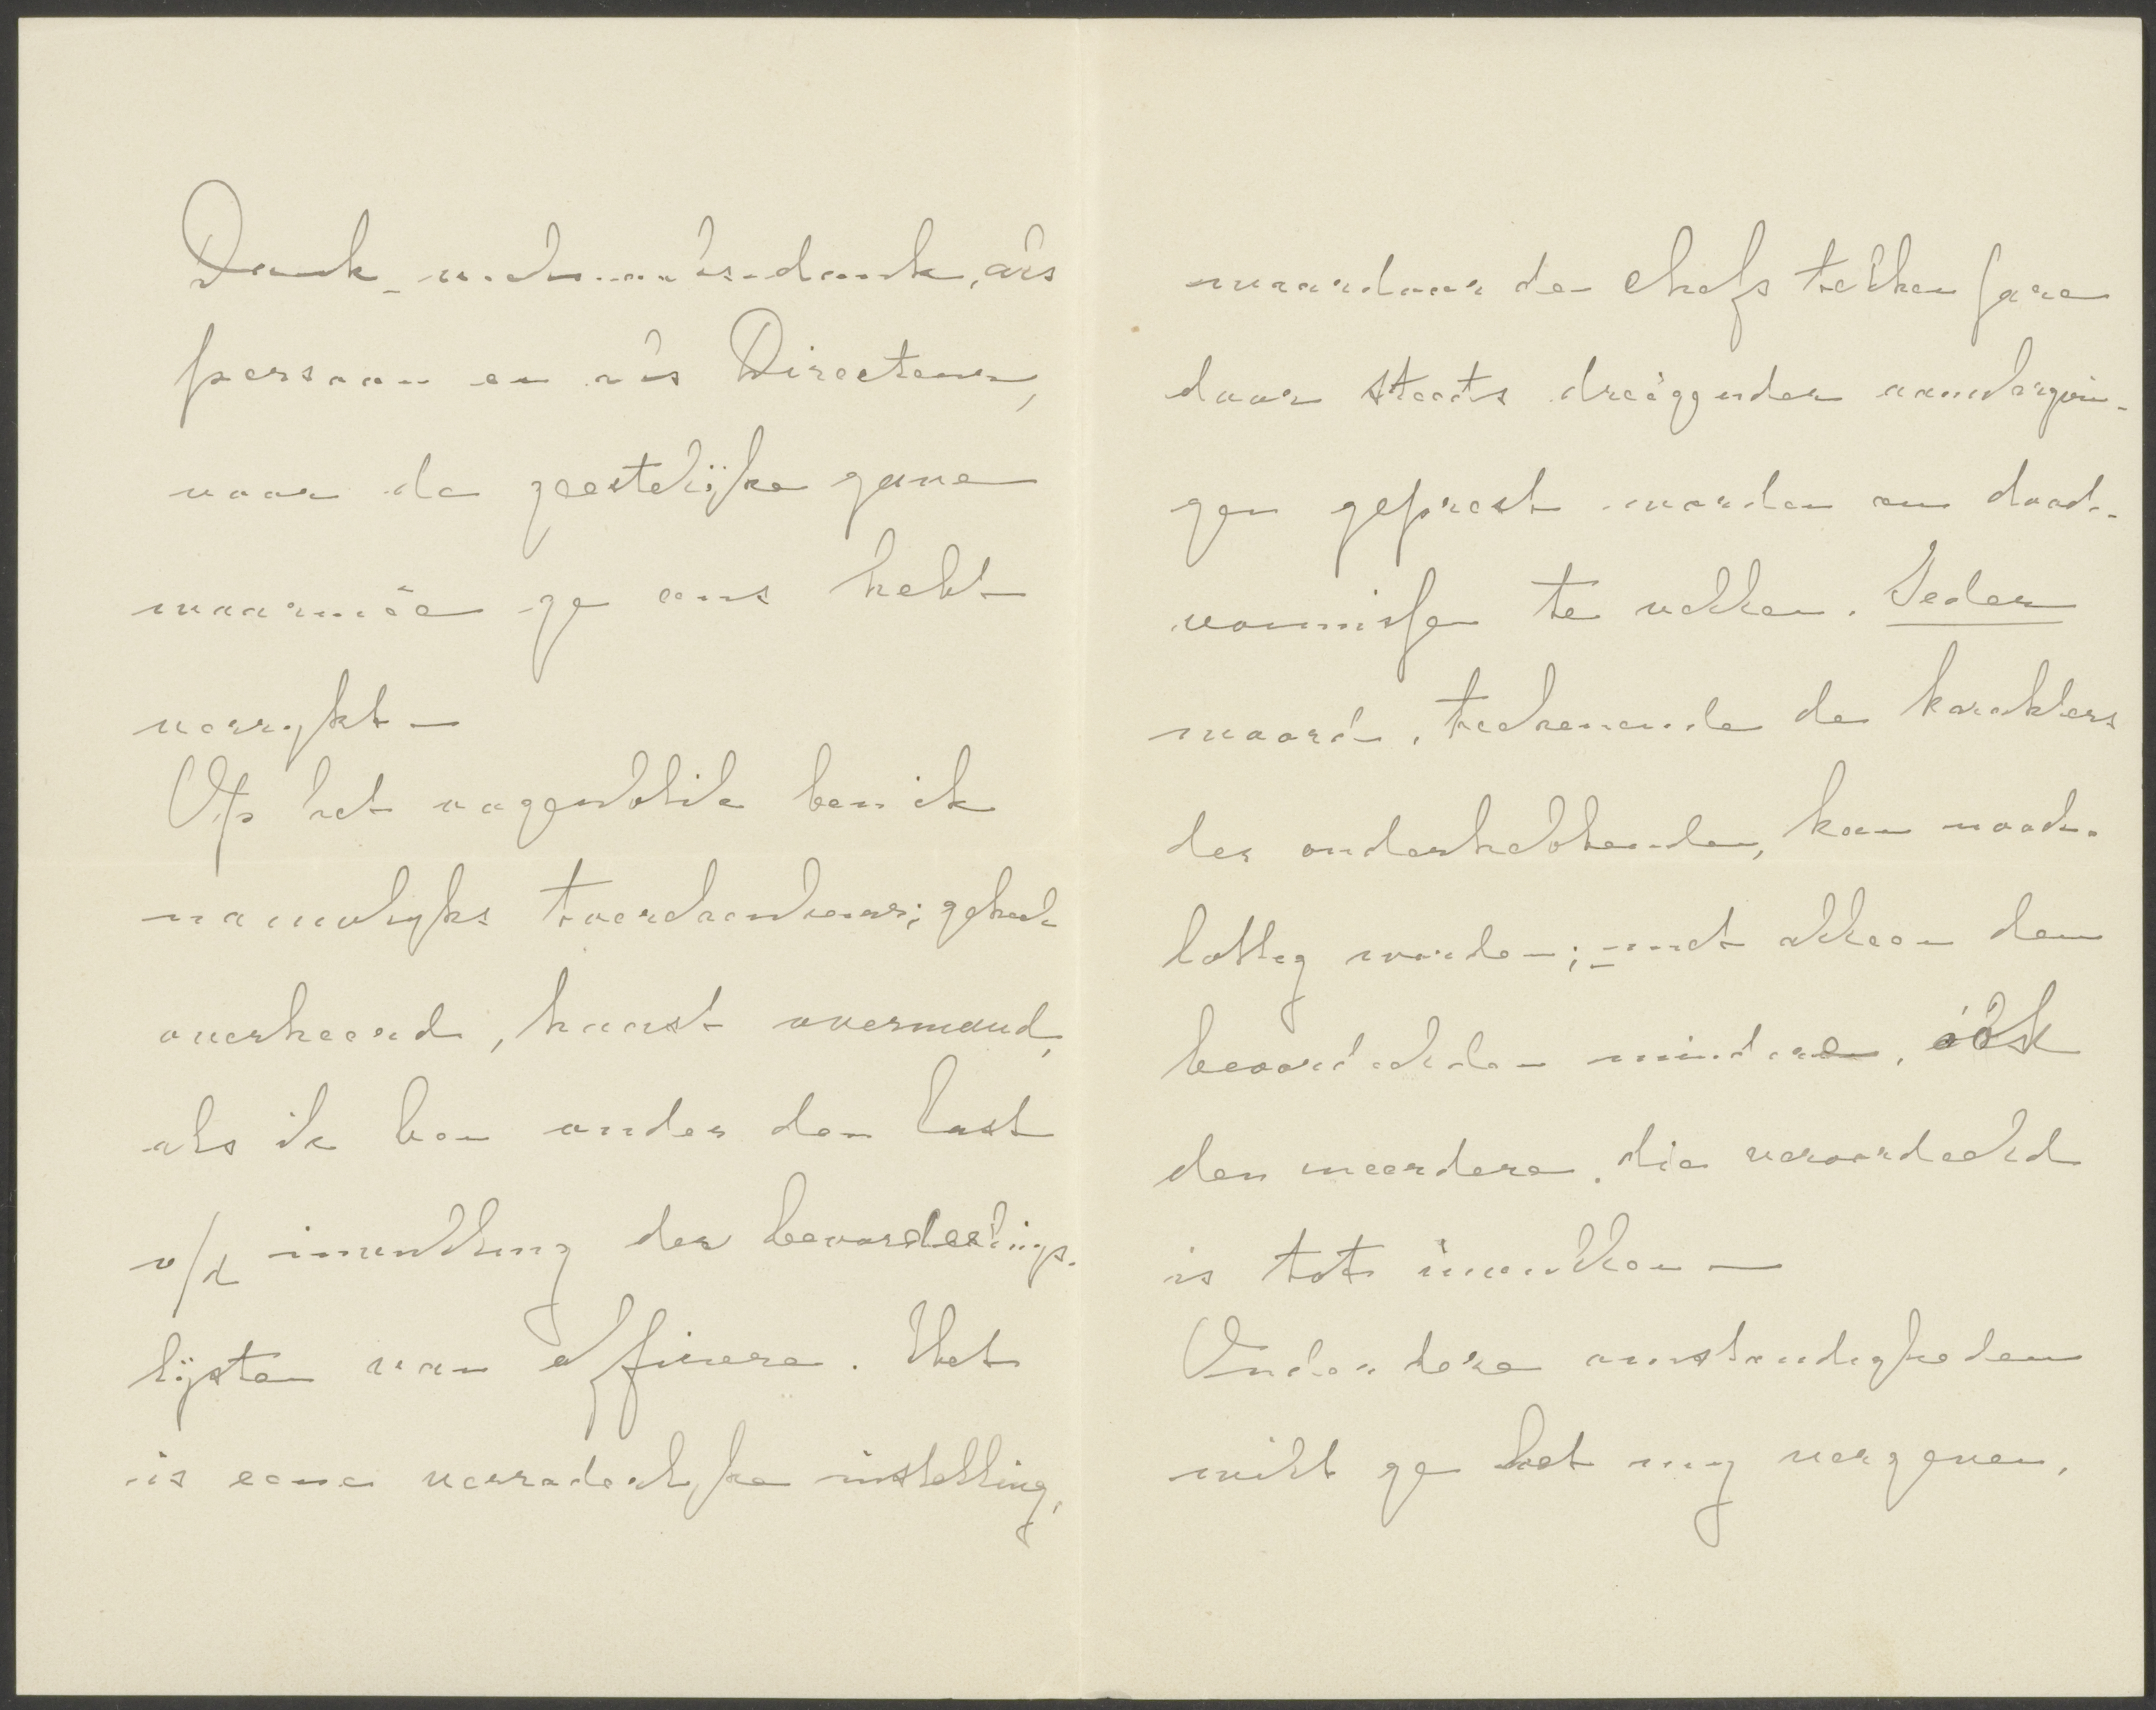 Dank, nogmaals dank, als
persoon en als Directeur,
voor de geestelijke gave
waarmêe ge ons hebt
verrykt —
Op het oogenblik ben ik
nauwelyks toerekenbaar; geheel
overheerd, haast overmand,
als ik ben onder den last
v/d invulling der bevorderings-
lijsten van officieren. Het
is eene verraderlyke instelling,
waardoor de chefs telken jare
door steeds dreiggender
gen geprest worden om dood-
vonnissen te vellen. Ieder
woord, teekenende de karakters
der onderhebbenden, kan nood-
lottig worden; — niet alleen den
beoordeelden mindere, óók
den meerdere, die veroordeeld
is tot invullen —
Onder deze omstandigheden
wilt ge het my vergeven,